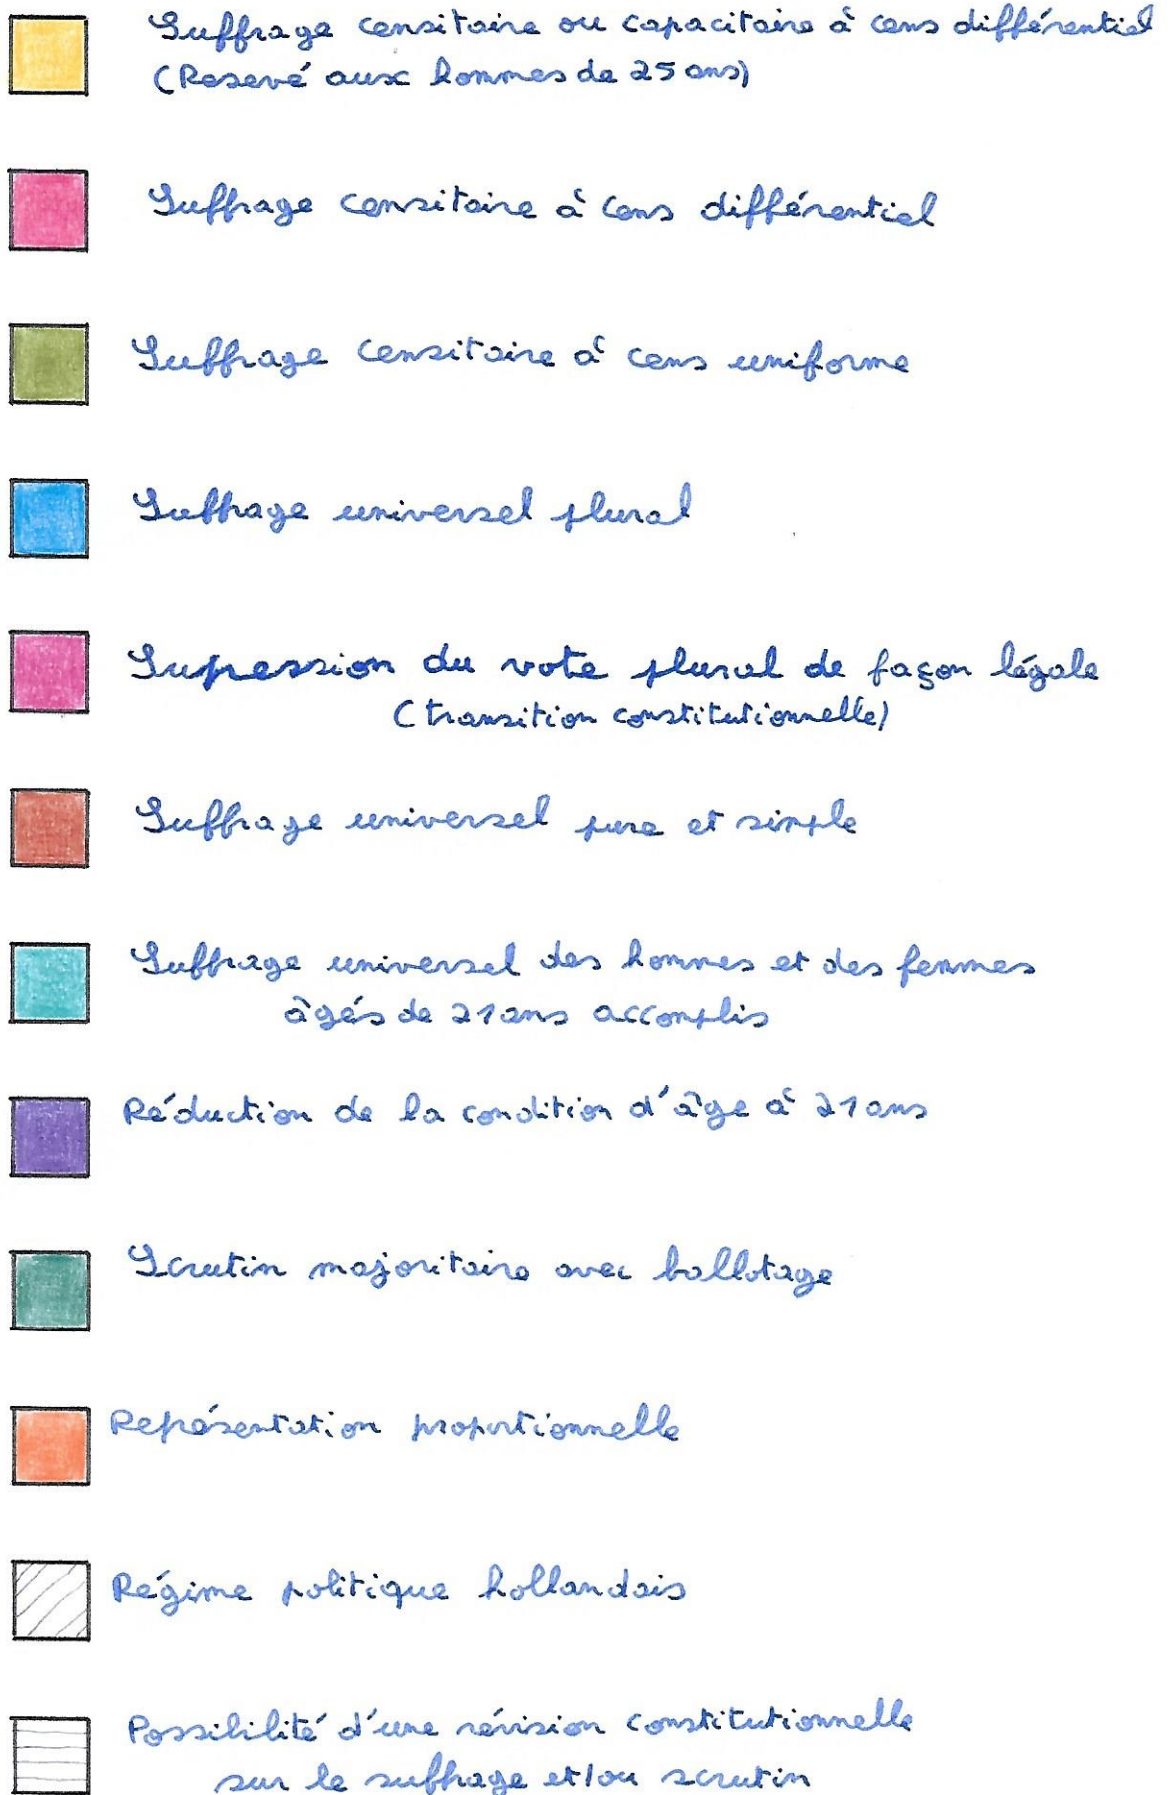 Suffrage censitaire ou capacitaire à cens différentiel
(Reservé aux hommes de 25 ans)
Suffrage censitaire à cens différentiel
Suffrage censitaire à cens uniforme
Suffrage universel plural
Supression du vote plural de façon légale
(transition constitutionnelle)
Suffrage universel pure et simple
Suffrage universel des hommes et des femmes
âgés de 21 ans accomplis
Réduction de la condition d'âge à 21 ans
Scrutin majoritaire avec ballotage
Représentation proportionnelle
Régime politique hollandais
Possibilité d'une révision constitutionnelle
sur le suffrage et/ou scrutin